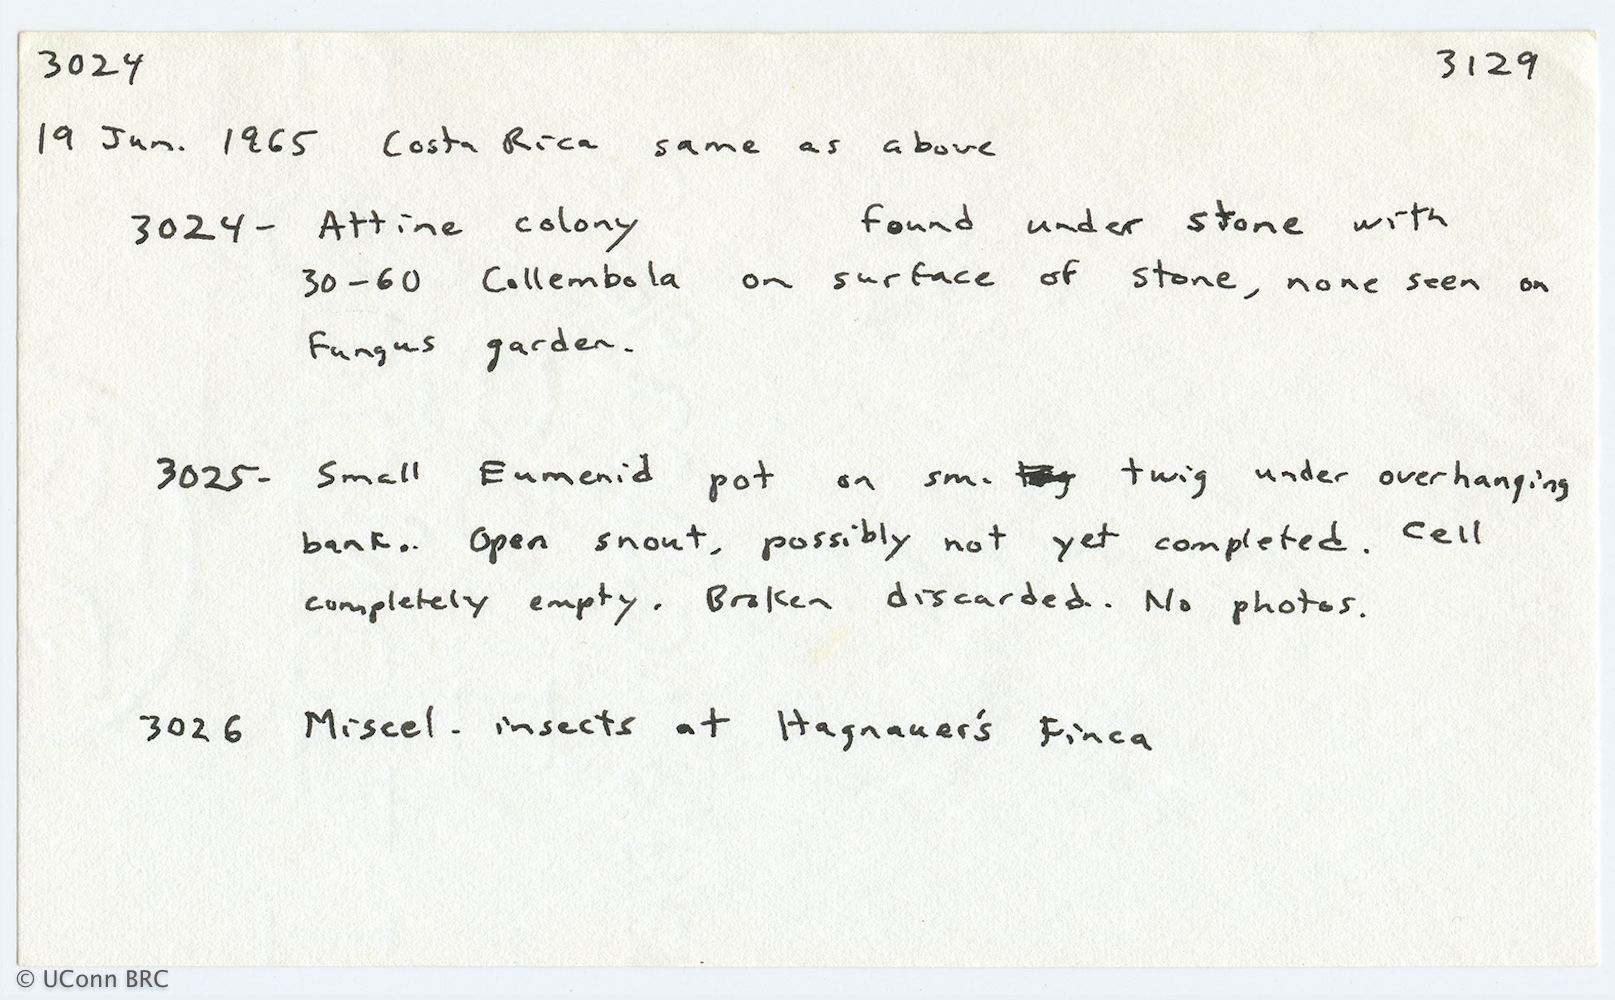 3024 3129
19 Jun. 1965 Costa Rica same as above
3024- Attine colony found under stone with
30-60 Collembola on surface of stone, none seen on
Fungus garden.
3025- Small Eumenid pot on sm. twig under overhanging
bank.. Open snout, possibly not yet completed. Cell
completely empty. Broken discarded. No photos.
3026 Miscel. insects at Hagnauer's Finca
© UConn BRC